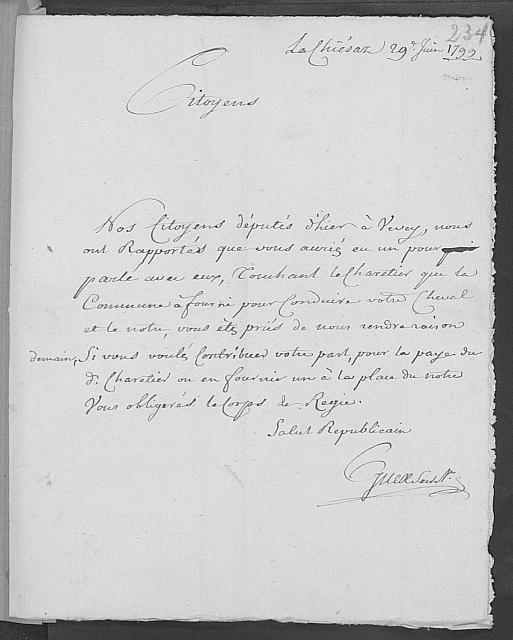 234
La Chiésaz 29e Juin 1799
Citoyens
Nos Citoyens députés d'hier à Vevey, nous
ont Rapportés que vous auriés eu un pour
parlé avec eux, Touchant le Charetier que la
Commune à fourni pour Conduire votre Cheval
et le notre, vous êtes priés de nous rendre raison
demain, Si vous voulés Contribuer votre part, pour la paye du
dt. Charetier ou en fournir un à la place du notre
Vous obligerés le Corps de Regie.
Salut Republicain